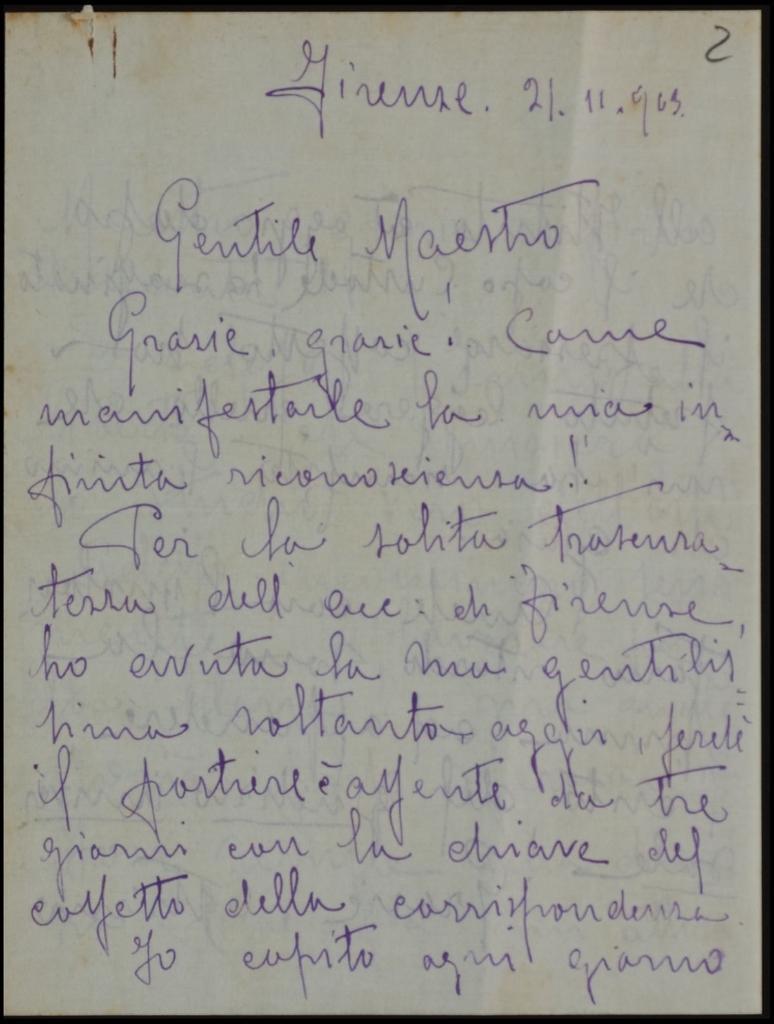 2
Firenze. 21. 11. 903.
Gentile Maestro
Grazie, grazie. Come
manifestarle la mia in=
finita riconoscienza!!
Per la solita trascura=
tezza dell'acc. di Firenze,
ho avuta la sua gentilis=
sima soltanto oggi, perchè
il portiere è assente da tre
giorni con la chiave del
cassetto della corrispondenza.
Io capito ogni giorno